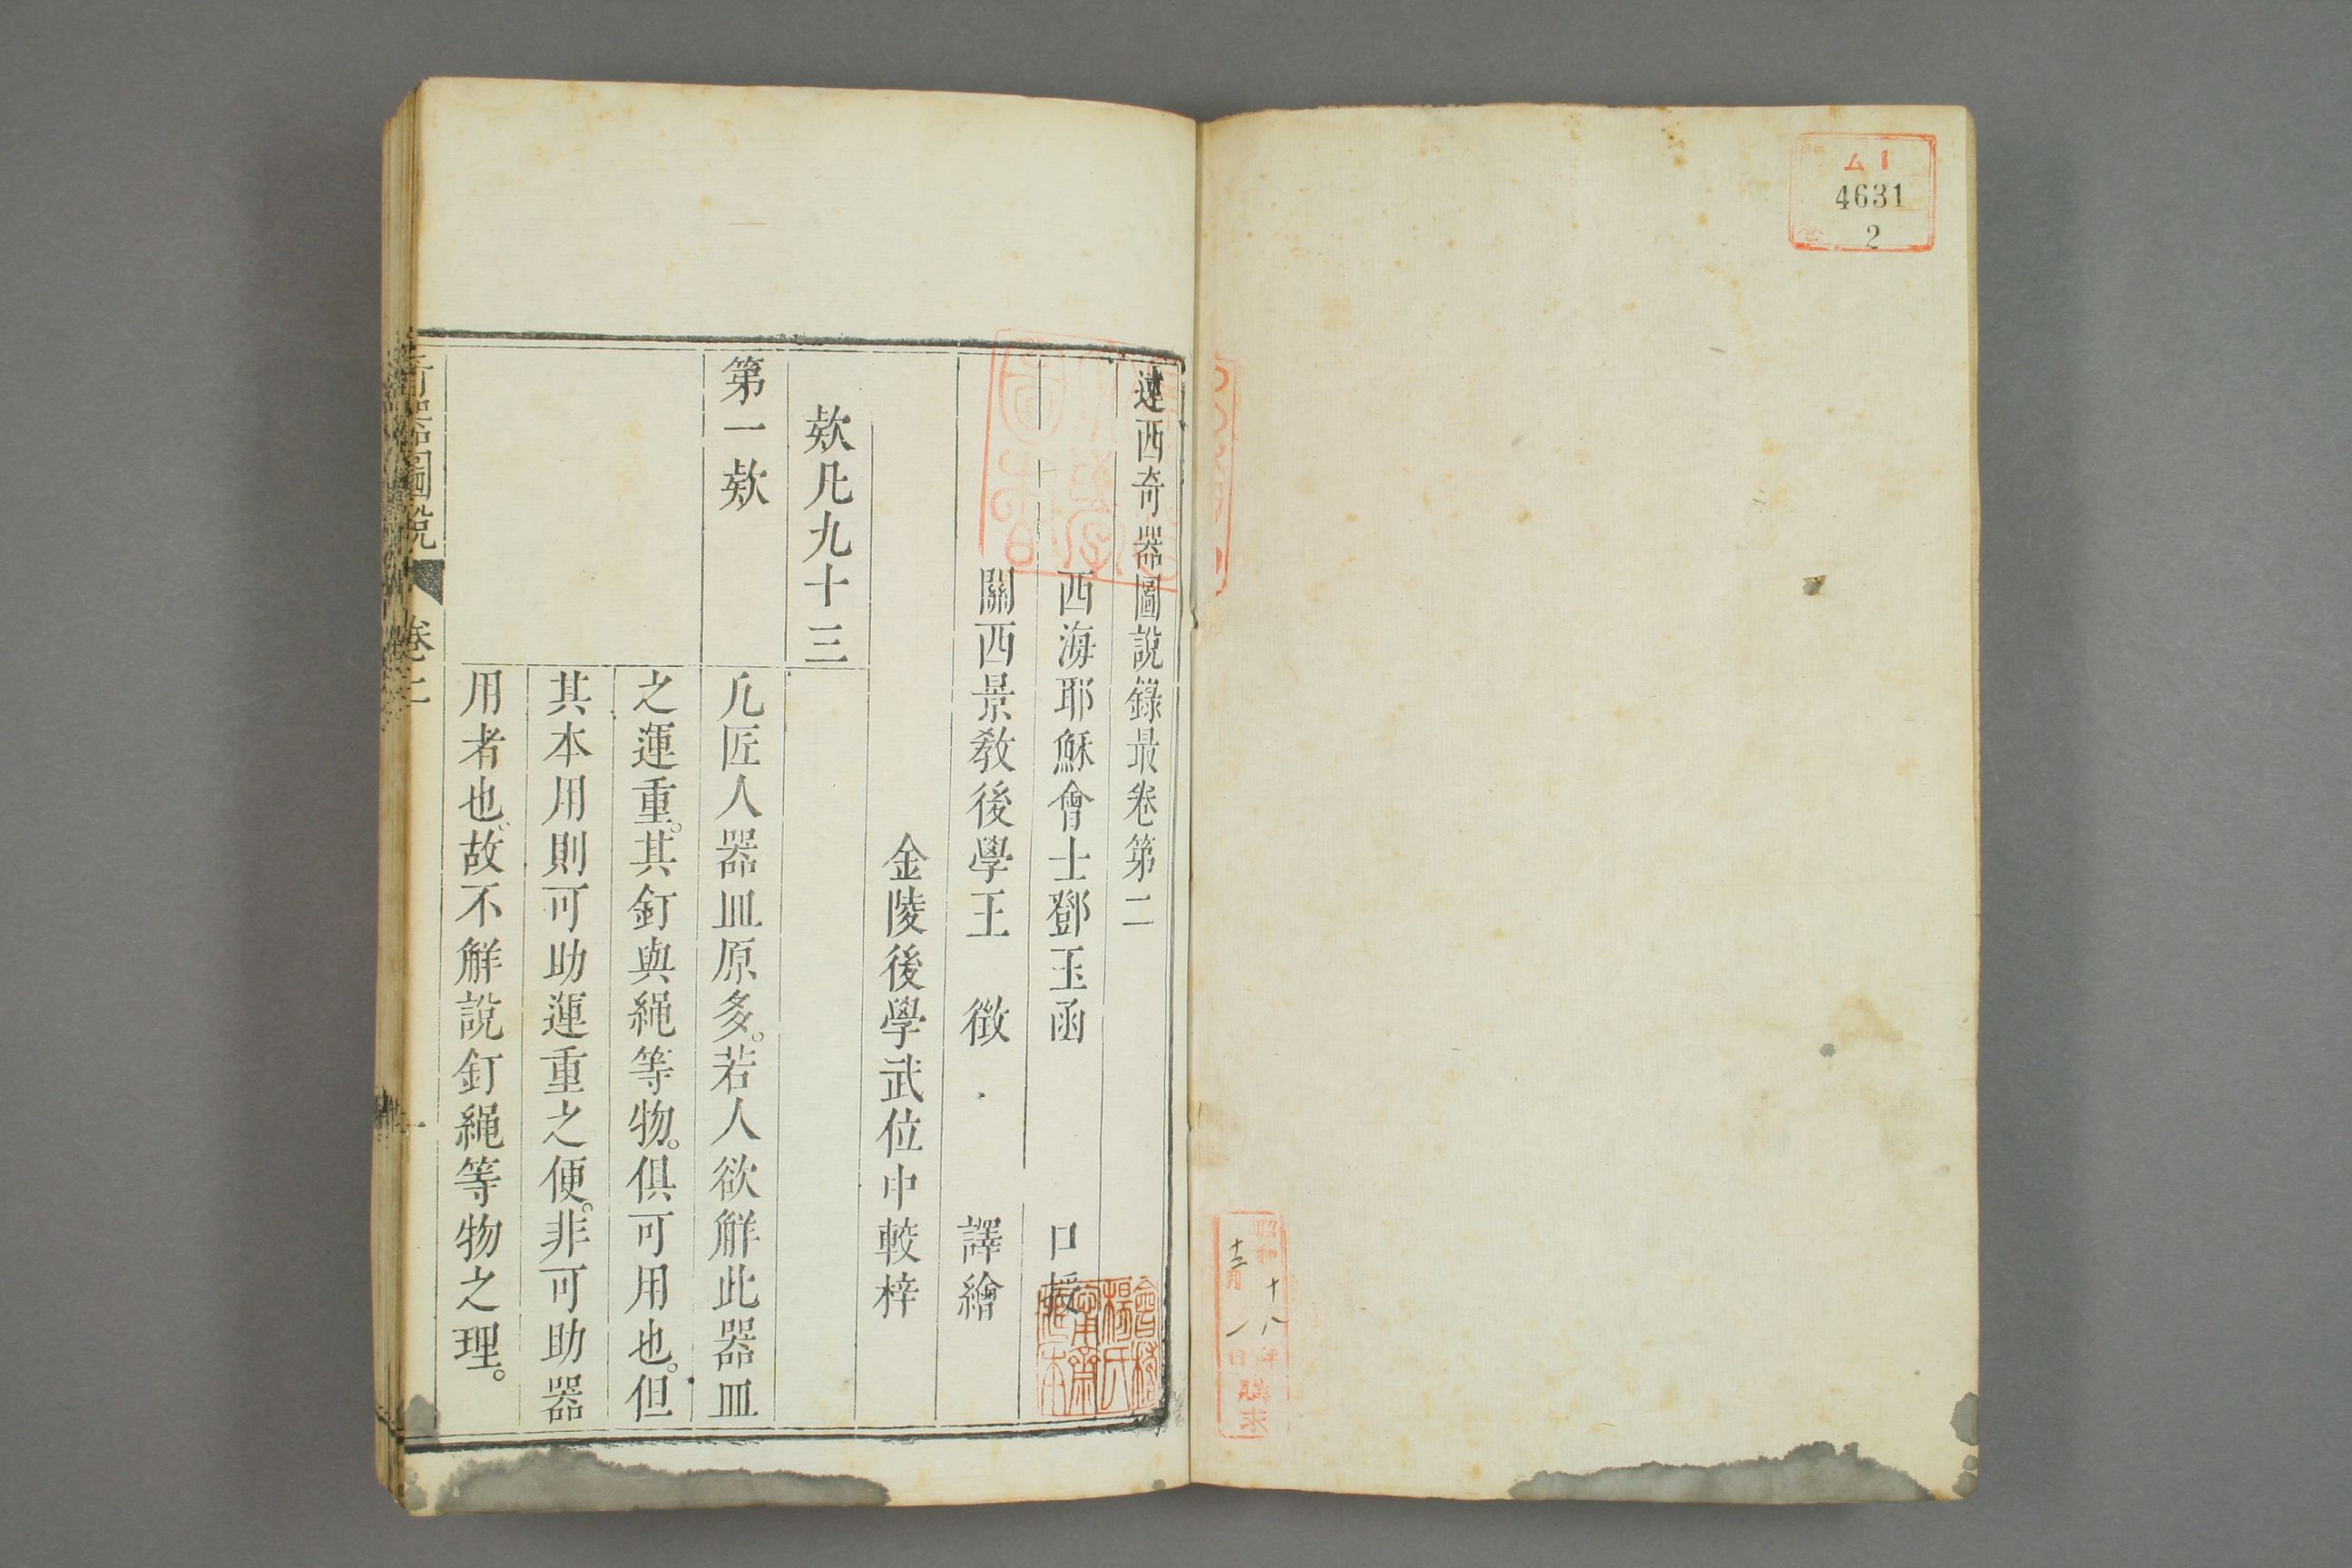 ム1
4631
2
遠西奇器圖說錄最卷第二
西海耶穌會士鄧玉函　口授
關西景教後學王　徵　譯繪
金陵後學武位中較梓
款凡九十三
第一款
凡匠人器皿原多。若人欲觧此器皿
之運重。其釘與繩等物。俱可用也。但
其本用則可助運重之便。非可助器
用者也。故不觧說釘繩等物之理。
奇器圖說　卷二　一
昭和十八年
十二月一日
購求